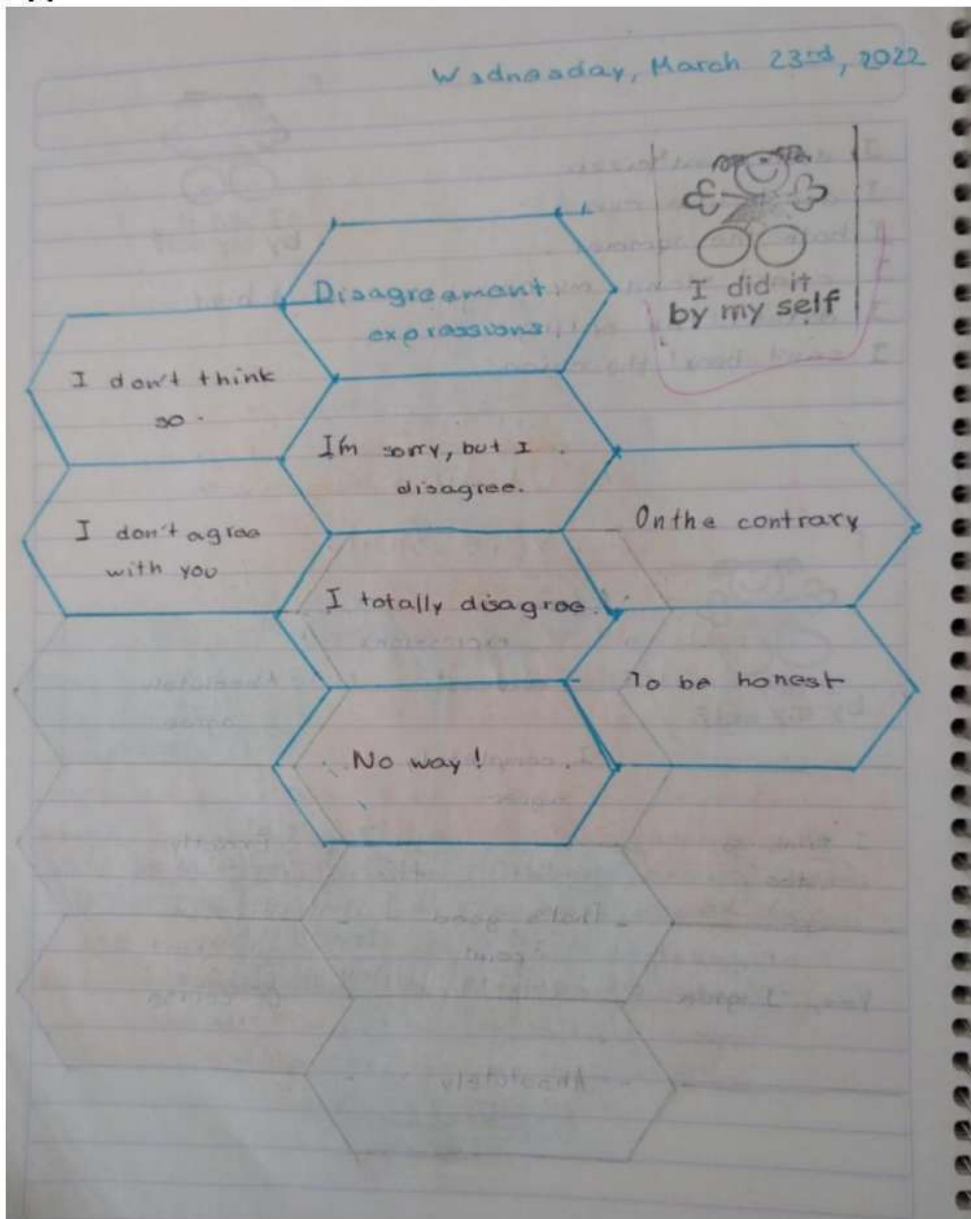 Wednesday, March 23rd, 2022
I did it
by my self
Disagreement
expressions
I don't think
so.
I'm sorry, but I
disagree.
I don't agree
with you
On the contrary
I totally disagree.
To be honest
No way!